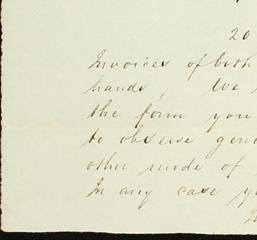 20
Invoices of both
hands, We
the form you
to observe gene
other mode of
In any case yo